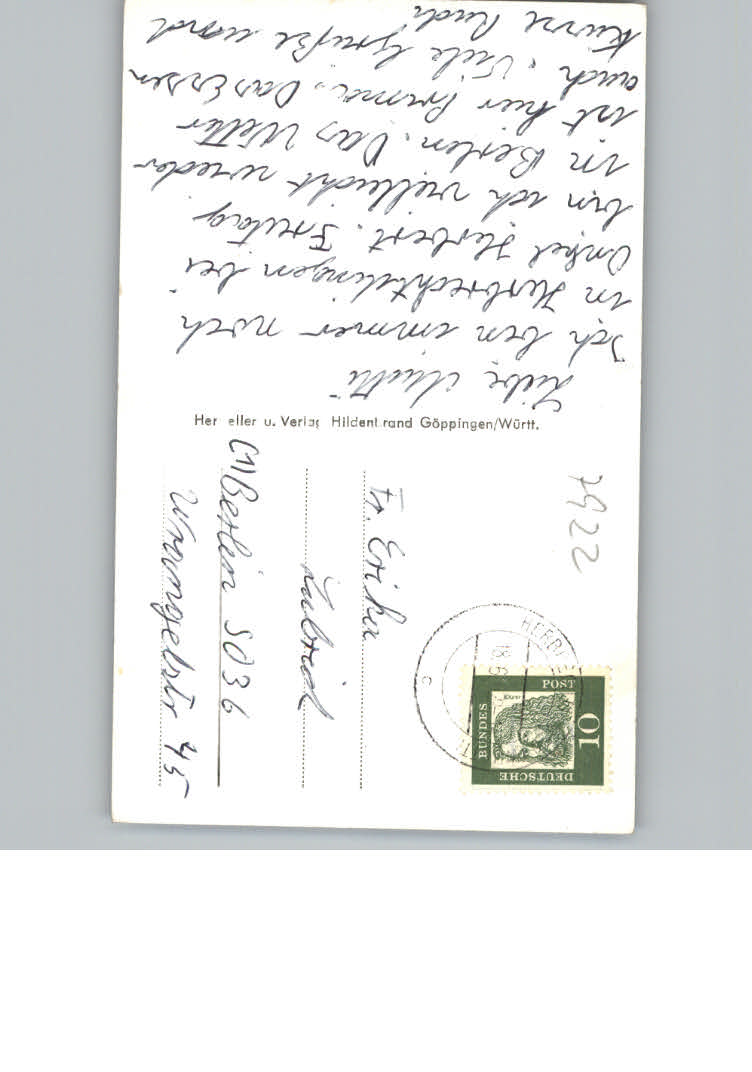 Liebe Mutti
Ich bin immer noch
in Herbrechtingen bei
Onkel Herbert. Freitag
bin ich vielleicht wieder
in Berlin. Das Wetter
ist hier prima. Das Essen
auch. Viele Grüße und
Küsse Rudi
Her eller u. Verlag Hildenbrand Göppingen/Württ.
7922
HERBRE
18.6
DEUTSCHE
BUNDES
POST
10
Fr. Erika
(1) Berlin SO36
Wrangelstr 45